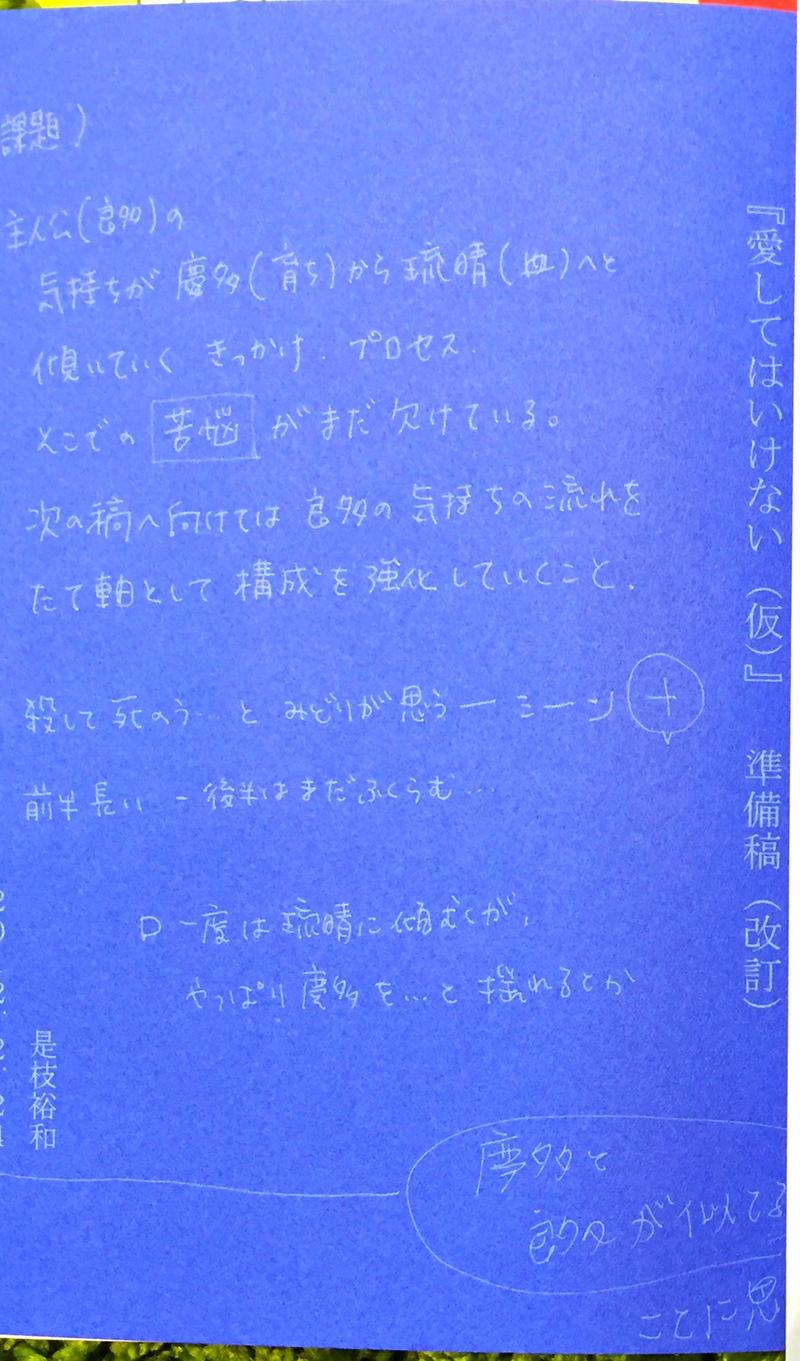 『愛してはいけない(仮)』 準備稿(改訂)
課題)
主人公(良多)の
気持ちが 慶多(育ち)から 琉晴(血)へと
傾いていく きっかけ. プロセス.
そこでの 苦悩 がまだ 欠けている。
次の稿へ向けては 良多の 気持ちの流れを
たて軸として 構成を 強化していくこと.
殺して死のう… と みどりが思う ー シーン +
前半長い - 後半はまだふくらむ…
一度は 琉晴に 傾むくが,
やっぱり 慶多を… と 揺れるとか
是枝裕和
2012.2.24
慶多と
良多が似てる
ことに思